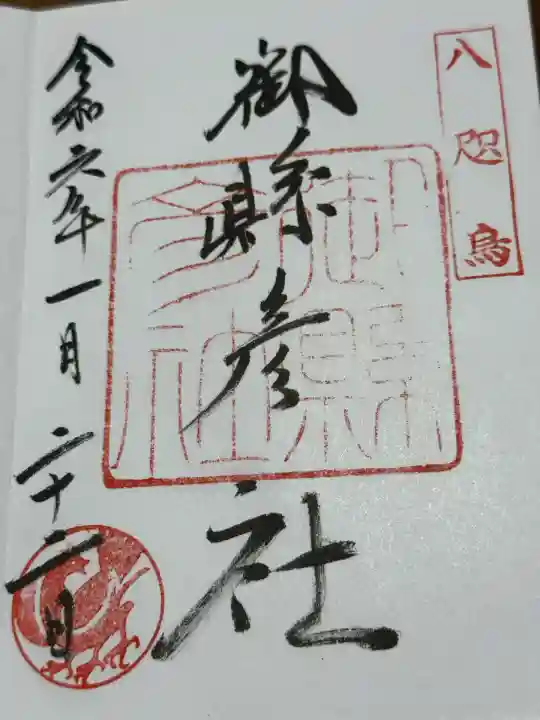 八咫烏
御縣彦社
御縣彦社
令和六年一月二十二日